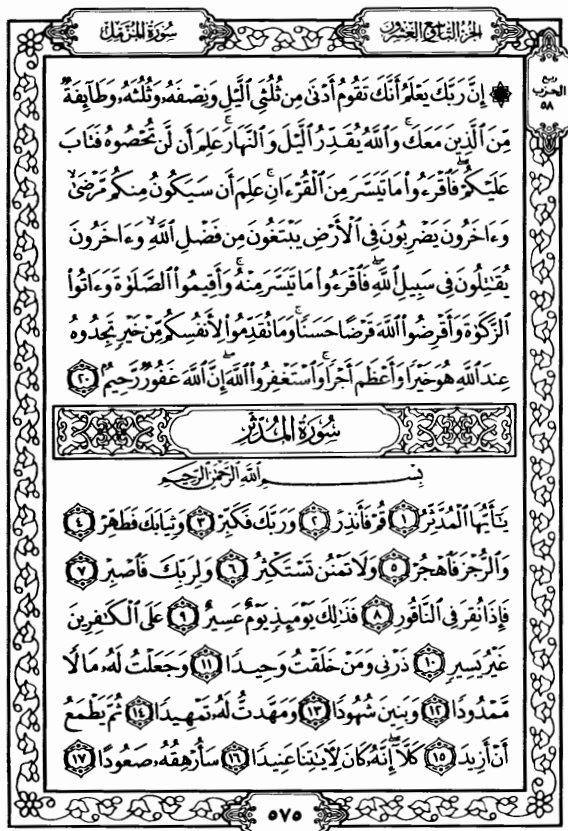 الجزء التاسع والعشرون
سورة المزمل
ربع
الحزب
٥٨
۞ إِنَّ رَبَّكَ يَعْلَمُ أَنَّكَ تَقُومُ أَدْنَىٰ مِن ثُلُثَيِ ٱلَّيْلِ وَنِصْفَهُۥ وَثُلُثَهُۥ وَطَآئِفَةٌ
مِّنَ ٱلَّذِينَ مَعَكَ ۚ وَٱللَّهُ يُقَدِّرُ ٱلَّيْلَ وَٱلنَّهَارَ ۚ عَلِمَ أَن لَّن تُحْصُوهُ فَتَابَ
عَلَيْكُمْ ۖ فَٱقْرَءُوا۟ مَا تَيَسَّرَ مِنَ ٱلْقُرْءَانِ ۚ عَلِمَ أَن سَيَكُونُ مِنكُم مَّرْضَىٰ ۙ
وَءَاخَرُونَ يَضْرِبُونَ فِى ٱلْأَرْضِ يَبْتَغُونَ مِن فَضْلِ ٱللَّهِ ۙ وَءَاخَرُونَ
يُقَـٰتِلُونَ فِى سَبِيلِ ٱللَّهِ ۖ فَٱقْرَءُوا۟ مَا تَيَسَّرَ مِنْهُ ۚ وَأَقِيمُوا۟ ٱلصَّلَوٰةَ وَءَاتُوا۟
ٱلزَّكَوٰةَ وَأَقْرِضُوا۟ ٱللَّهَ قَرْضًا حَسَنًا ۚ وَمَا تُقَدِّمُوا۟ لِأَنفُسِكُم مِّنْ خَيْرٍ تَجِدُوهُ
عِندَ ٱللَّهِ هُوَ خَيْرًا وَأَعْظَمَ أَجْرًا ۚ وَٱسْتَغْفِرُوا۟ ٱللَّهَ ۖ إِنَّ ٱللَّهَ غَفُورٌ رَّحِيمٌۢ ٢٠
سُورَةُ المُدَّثِّرِ
بِسْمِ ٱللَّهِ ٱلرَّحْمَـٰنِ ٱلرَّحِيمِ
يَـٰٓأَيُّهَا ٱلْمُدَّثِّرُ ١ قُمْ فَأَنذِرْ ٢ وَرَبَّكَ فَكَبِّرْ ٣ وَثِيَابَكَ فَطَهِّرْ ٤
وَٱلرُّجْزَ فَٱهْجُرْ ٥ وَلَا تَمْنُن تَسْتَكْثِرُ ٦ وَلِرَبِّكَ فَٱصْبِرْ ٧
فَإِذَا نُقِرَ فِى ٱلنَّاقُورِ ٨ فَذَٰلِكَ يَوْمَئِذٍ يَوْمٌ عَسِيرٌ ٩ عَلَى ٱلْكَـٰفِرِينَ
غَيْرُ يَسِيرٍ ١٠ ذَرْنِى وَمَنْ خَلَقْتُ وَحِيدًا ١١ وَجَعَلْتُ لَهُۥ مَالًا
مَّمْدُودًا ١٢ وَبَنِينَ شُهُودًا ١٣ وَمَهَّدتُّ لَهُۥ تَمْهِيدًا ١٤ ثُمَّ يَطْمَعُ
أَنْ أَزِيدَ ١٥ كَلَّآ ۖ إِنَّهُۥ كَانَ لِـَٔايَـٰتِنَا عَنِيدًا ١٦ سَأُرْهِقُهُۥ صَعُودًا ١٧
٥٧٥